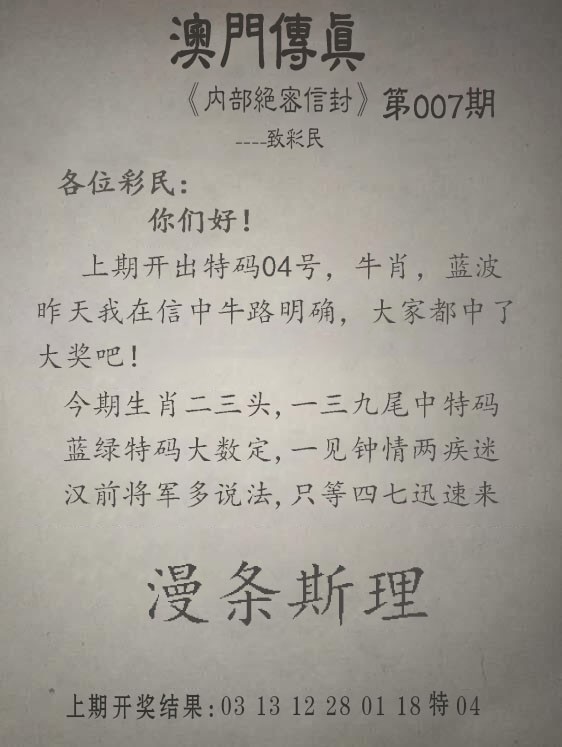 澳門傳真
《内部絕密信封》第007期
----致彩民
各位彩民：
你们好！
上期开出特码04号，牛肖，蓝波
昨天我在信中牛路明确，大家都中了
大奖吧！
今期生肖二三头,一三九尾中特码
蓝绿特码大数定,一见钟情两疾迷
汉前将军多说法,只等四七迅速来
漫条斯理
上期开奖结果:03 13 12 28 01 18 特 04